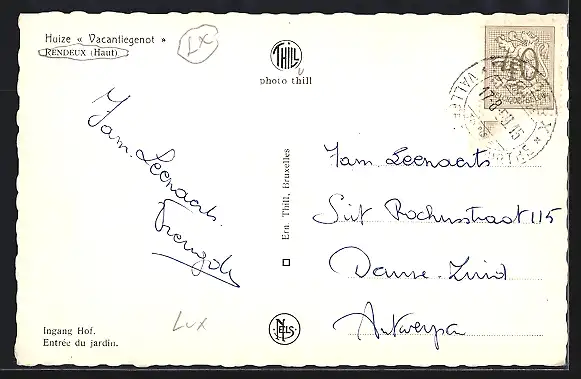 Huize « Vacantiegenot »
RENDEUX (Haut)
LX
THILL
photo thill
40
17-8-
15
Fam. Leenaerts
Ern. Thill, Bruxelles
Fam Leenaerts
Sint Rochusstraat 115
Deurne-Zuid
Antwerpen
Lux
NELS
Ingang Hof.
Entrée du jardin.